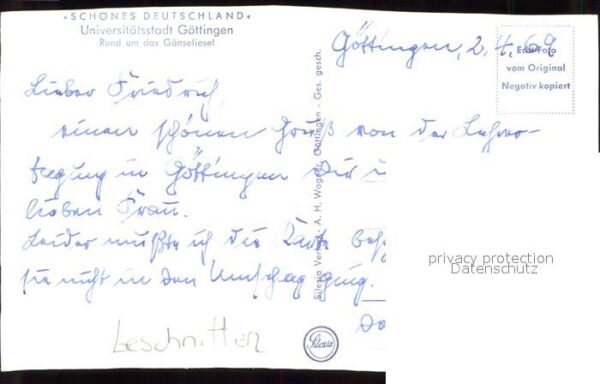 *SCHÖNES DEUTSCHLAND*
Universitätsstadt Göttingen
Rund um das Gänseliesel
Göttingen, 2.4.69
Echt Foto
vom Original
Negativ kopiert
Lieber Friedrich,
einen schönen Gruß von der
tagung in Göttingen Dir
lieben Frau.
Leider mußte ich die Karte
sie nicht in den Umschlag ging.
Silesia Verlag - A. H. Wagner, Göttingen - Ges. gesch.
Silesia
beschnitten
privacy protection
Datenschutz